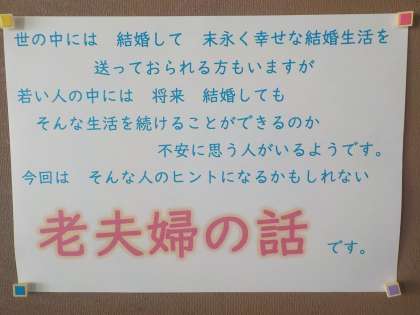 世の中には　結婚して　末永く幸せな結婚生活を
送っておられる方もいますが
若い人の中には　将来　結婚しても
そんな生活を続けることができるのか
不安に思う人がいるようです。
今回は　そんな人のヒントになるかもしれない
老夫婦の話　です。